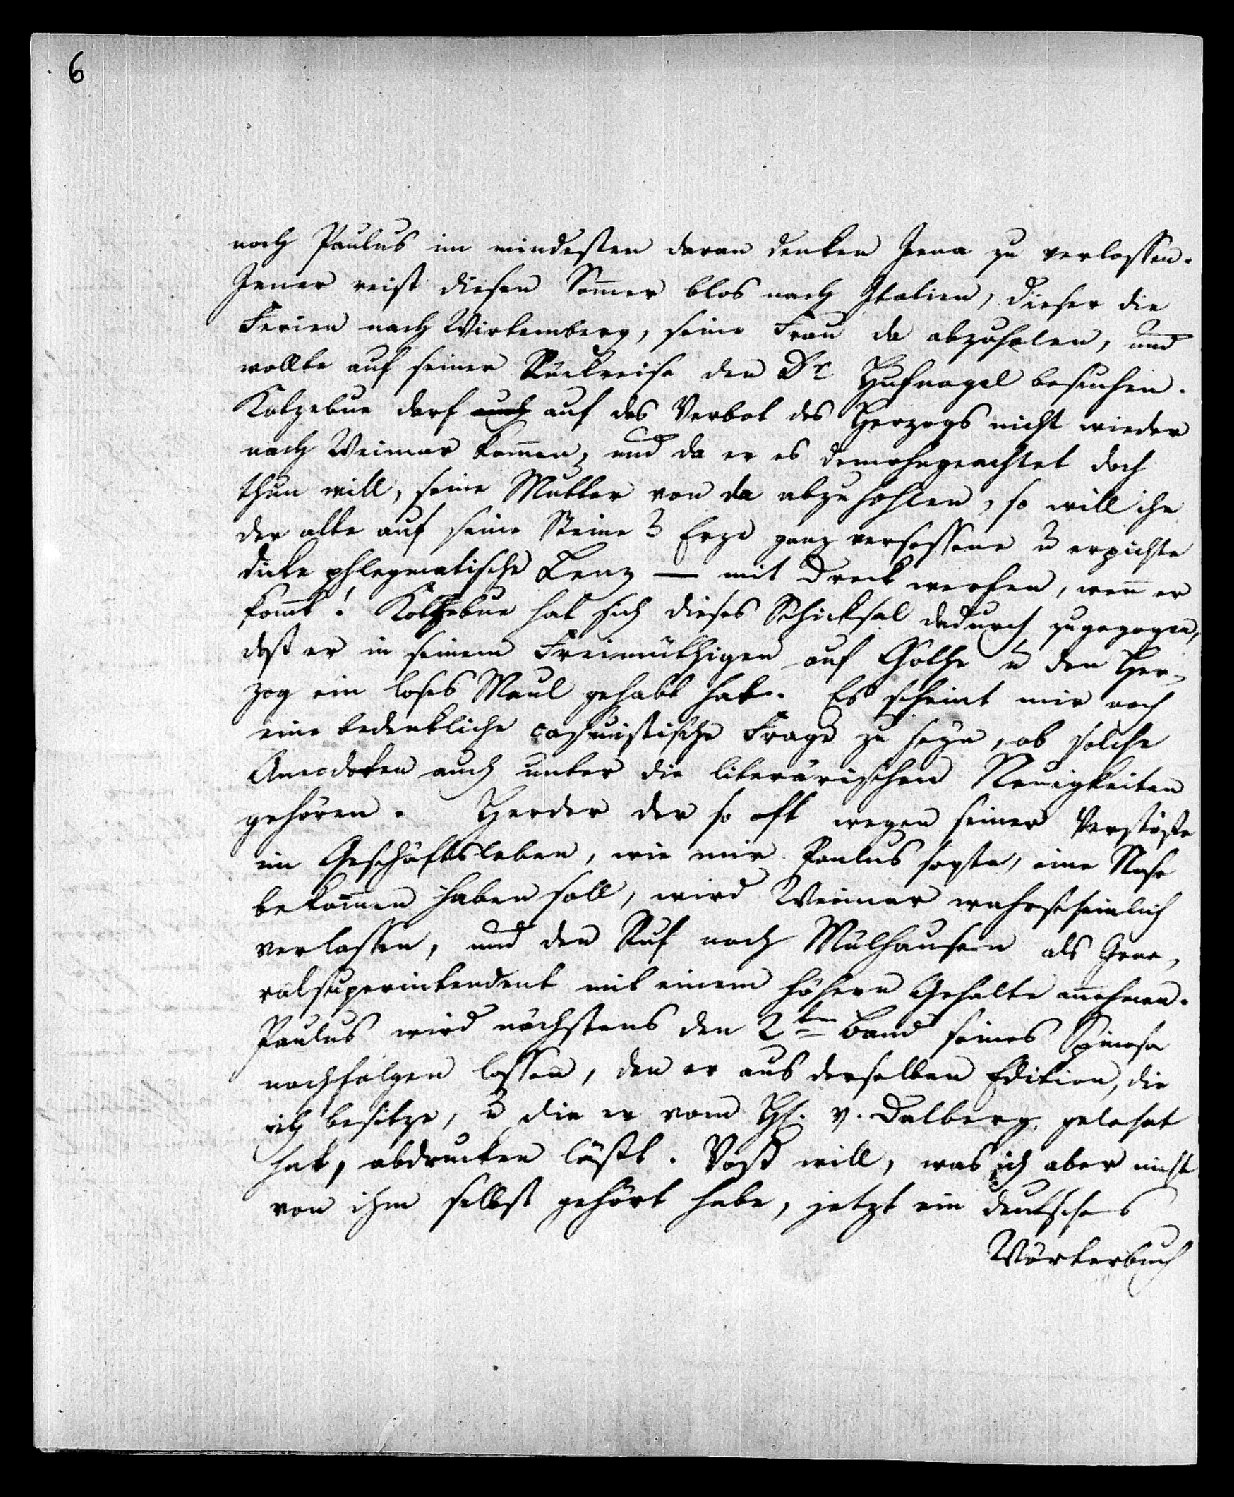 6
noch Paulus im mindesten daran denken Jena zu verlassen.
Jener reist diesen Som̅er blos nach Italien, dieser die
Ferien nach Wirtemberg, seine Frau da abzuholen, und
wollte auf seiner Rükreise den Dr. Hufnagel besuchen.
Kotzebue darf auch auf das Verbot des Herzogs nicht wieder
nach Weimar kom̅en, und da er es demohngeachtet doch
thun will, seine Mutter von da abzuhohlen, so will ihn
der alte auf seine Steine u Erze ganz versessene u erpichte
dicke phlegmatische Lenz — mit Dreck werfen, wen̅ er
kom̅t! Kotzebue hat sich dieses Schicksal dadurch zugezogen,
daß er in seinem Freimüthigen auf Göthe u den Her-
zog ein loses Maul gehabt hat. Es scheint mir noch
eine bedenkliche casuistische Frage zu seyn, ob solche
Anecdoten auch unter die literärischen Neuigkeiten
gehören. Herder der so oft wegen seiner Verstöße
im Geschäftsleben, wie mir Paulus sagte, eine Nase
bekom̅en haben soll, wird Weimar wahrscheinlich
verlassen, und den Ruf nach Mülhausen als Gene-
ralsuperintendent mit einem höhern Gehalte annehmen.
Paulus wird nächstens den 2ten Band seines Spinosa
nachfolgen lassen, den er aus derselben Edition, die
ich besitze, u die er vom H. v. Dalberg gelehnt
hat, abdrucken läßt. Voß will, was ich aber nicht
von ihm selbst gehört habe, jetzt ein deutsches
Wörterbuch